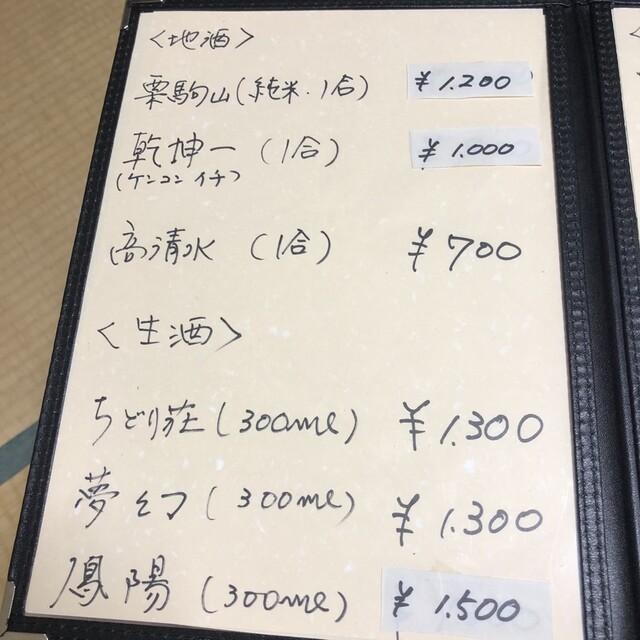 〈地酒〉
栗駒山(純米.1合) ¥1.200
乾坤一(1合) ¥1.000
(ケンコンイチ)
高清水(1合) ¥700
〈生酒〉
ちどり荘(300ml) ¥1.300
夢幻(300ml) ¥1.300
鳳陽(300ml) ¥1.500